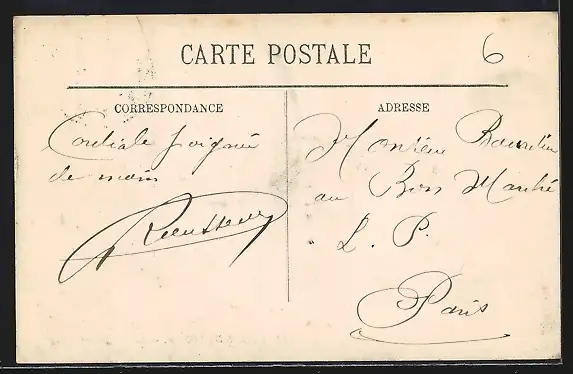 CARTE POSTALE
6
CORRESPONDANCE
ADRESSE
Cordiale poignée
de main
Monsieur
au Bon Marché
L. P.
Paris